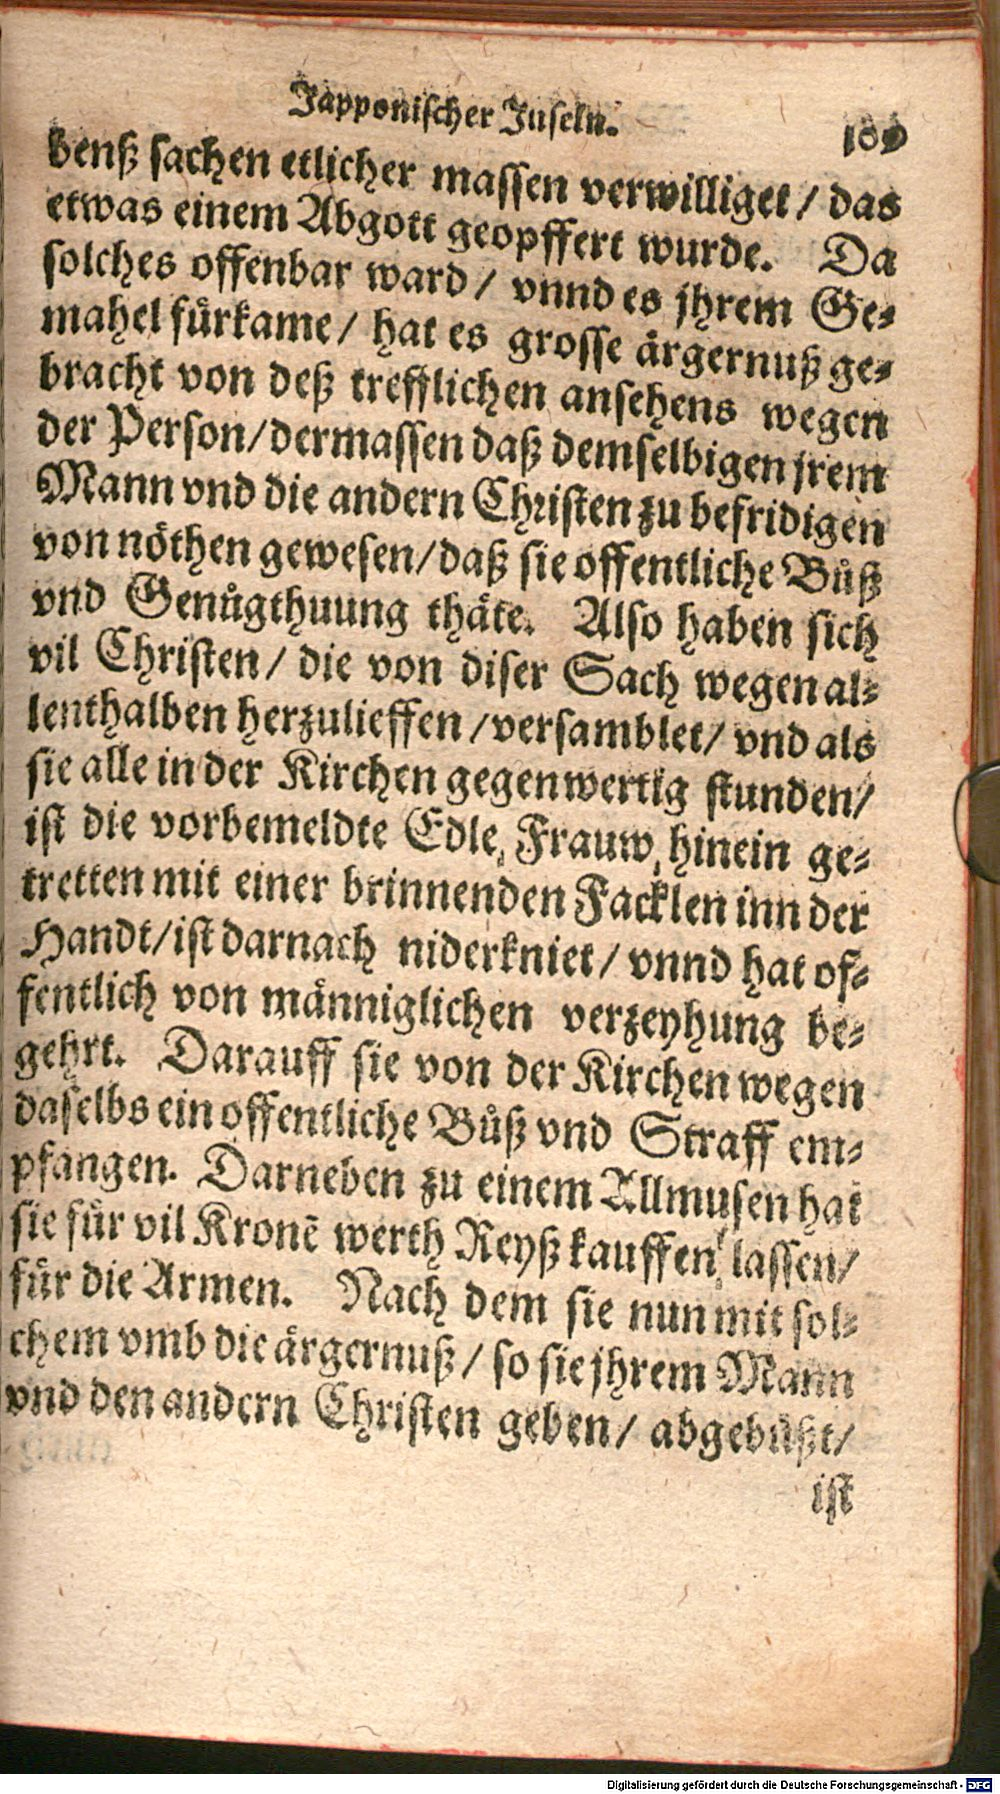 Japponischer Inseln. 189
benß sachen etlicher massen verwilliget / das
etwas einem Abgott geopffert wurde. Da
solches offenbar ward / vnnd es jhrem Ge-
mahel fürkame / hat es grosse ärgernuß ge-
bracht von deß trefflichen ansehens wegen
der Person / dermassen daß demselbigen jrem
Mann vnd die andern Christen zu befridigen
von nöthen gewesen / daß sie offentliche Bůß
vnd Genůgthuung thäte. Also haben sich
vil Christen / die von diser Sach wegen al-
lenthalben herzulieffen / versamblet / vnd als
sie alle in der Kirchen gegenwertig stunden /
ist die vorbemeldte Edle Frauw hinein ge-
tretten mit einer brinnenden Facklen inn der
Handt / ist darnach niderkniet / vnnd hat of-
fentlich von männiglichen verzeyhung be-
gehrt. Darauff sie von der Kirchen wegen
daselbs ein offentliche Bůß vnd Straff em-
pfangen. Darneben zu einem Allmusen hat
sie für vil Kronē werth Reyß kauffen lassen /
für die Armen. Nach dem sie nun mit sol-
chem vmb die ärgernuß / so sie jhrem Mann
vnd den andern Christen geben / abgebůßt /
ist
Digitalisierung gefördert durch die Deutsche Forschungsgemeinschaft - DFG